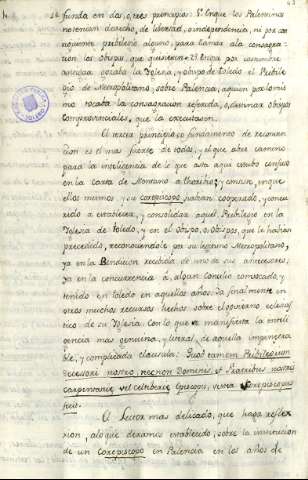 funda en dos, o, tres principios: 1º En que los Palentinos
no tenian derecho, de libertad, o independencia, ni por con
siguiente Privilegio alguno, para llamar a la consagra
cion los obispos, que quisieren: 2º En que por costumbre
antigua gozaba la Yglesia, y obispo de Toledo el Privile
gio de Metropolitano, sobre Palencia, a quien por lo mis
mo tocaba la consagracion referida, o, destinar obispos
comprovinciales, que la executasen.
El tercer principio, o fundamento de
es el mas fuerte de todos, y el que abre camino
para la inteligencia de lo que hasta aqui estubo confuso
en la Carta de Montano a Thoribio; y consiste, en que
ellos mismos y su corepiscopo habian cooperado, y concu
rrido a establecer, y consolidar aquel Privilegio en la
Yglesia de Toledo, y en el obispo, o, obispos, que le havian
precedido, reconociendole por su legitimo Metropolitano,
ya en la Bendicion recibida de uno de sus antecesores,
ya en la concurrencia á, algun Concilio convocado, y
tenido en Toledo en aquellos años, ya finalmente en
otros muchos recursos hechos sobre el govierno eclesias
tico de su Yglesia. Con lo que se manifiesta la inteli
gencia mas genuina, y literal, de aquella impenetra
ble, y complicada clausula: Quod tamen Privilegium
decessori nostro, necnon Dominis, et Fratribus nostris
Carpentaniæ, vel Celtiberiæ Episcopis, vester Corepiscopus
fecit.
El Lector mas delicado, que haga refle
xion, a lo que dexamos establecido, sobre la institucion
de un Corepiscopo en Palencia en los años de